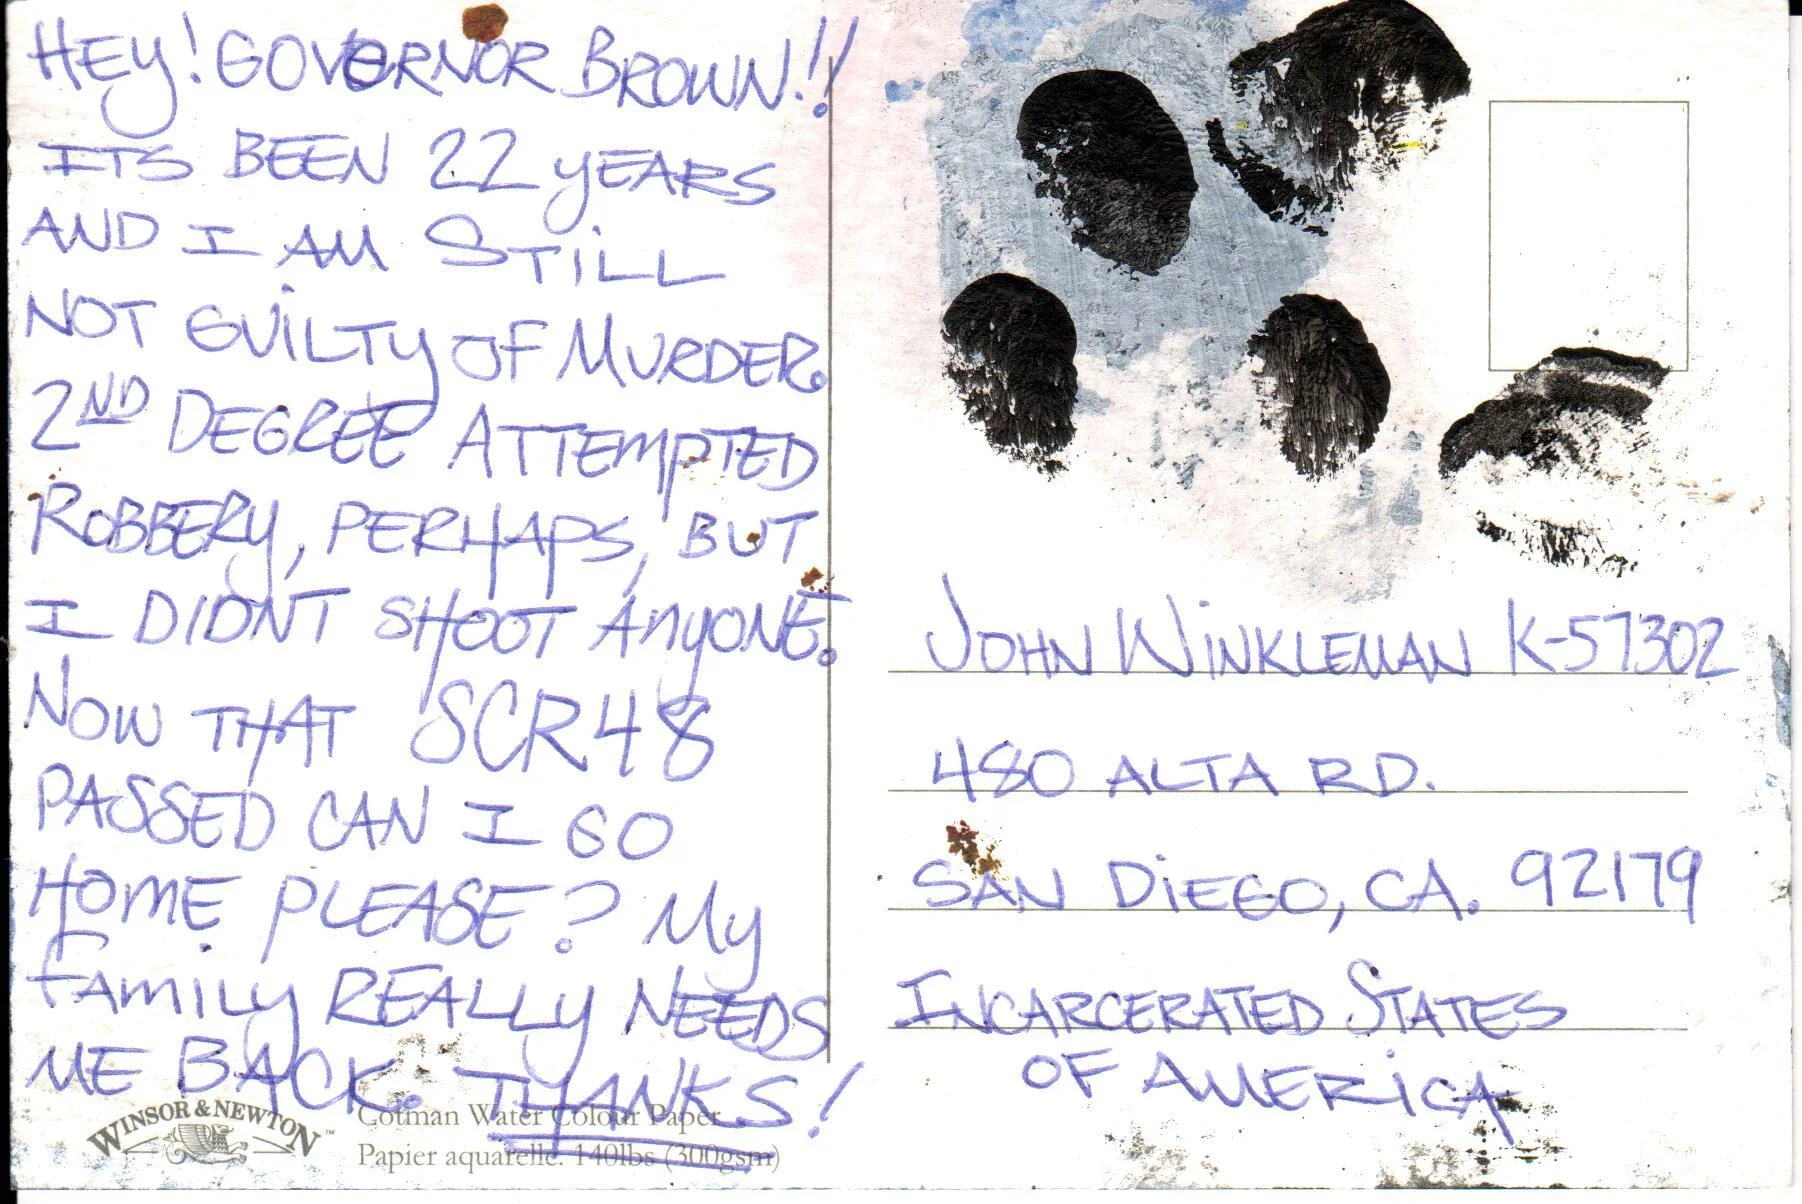 HEY! GOVERNOR BROWN!!
ITS BEEN 22 YEARS
AND I AM STILL
NOT GUILTY OF MURDER.
2ND DEGREE ATTEMPTED
ROBBERY, PERHAPS, BUT
I DIDNT SHOOT ANYONE.
NOW THAT SCR48
PASSED CAN I GO
HOME PLEASE? MY
FAMILY REALLY NEEDS
ME BACK. THANKS!
WINSOR & NEWTON™
Cotman Water Colour Paper
Papier aquarelle. 140lbs (300gsm)
JOHN WINKLEMAN K-57302
480 ALTA RD.
SAN DIEGO, CA. 92179
INCARCERATED STATES
OF AMERICA